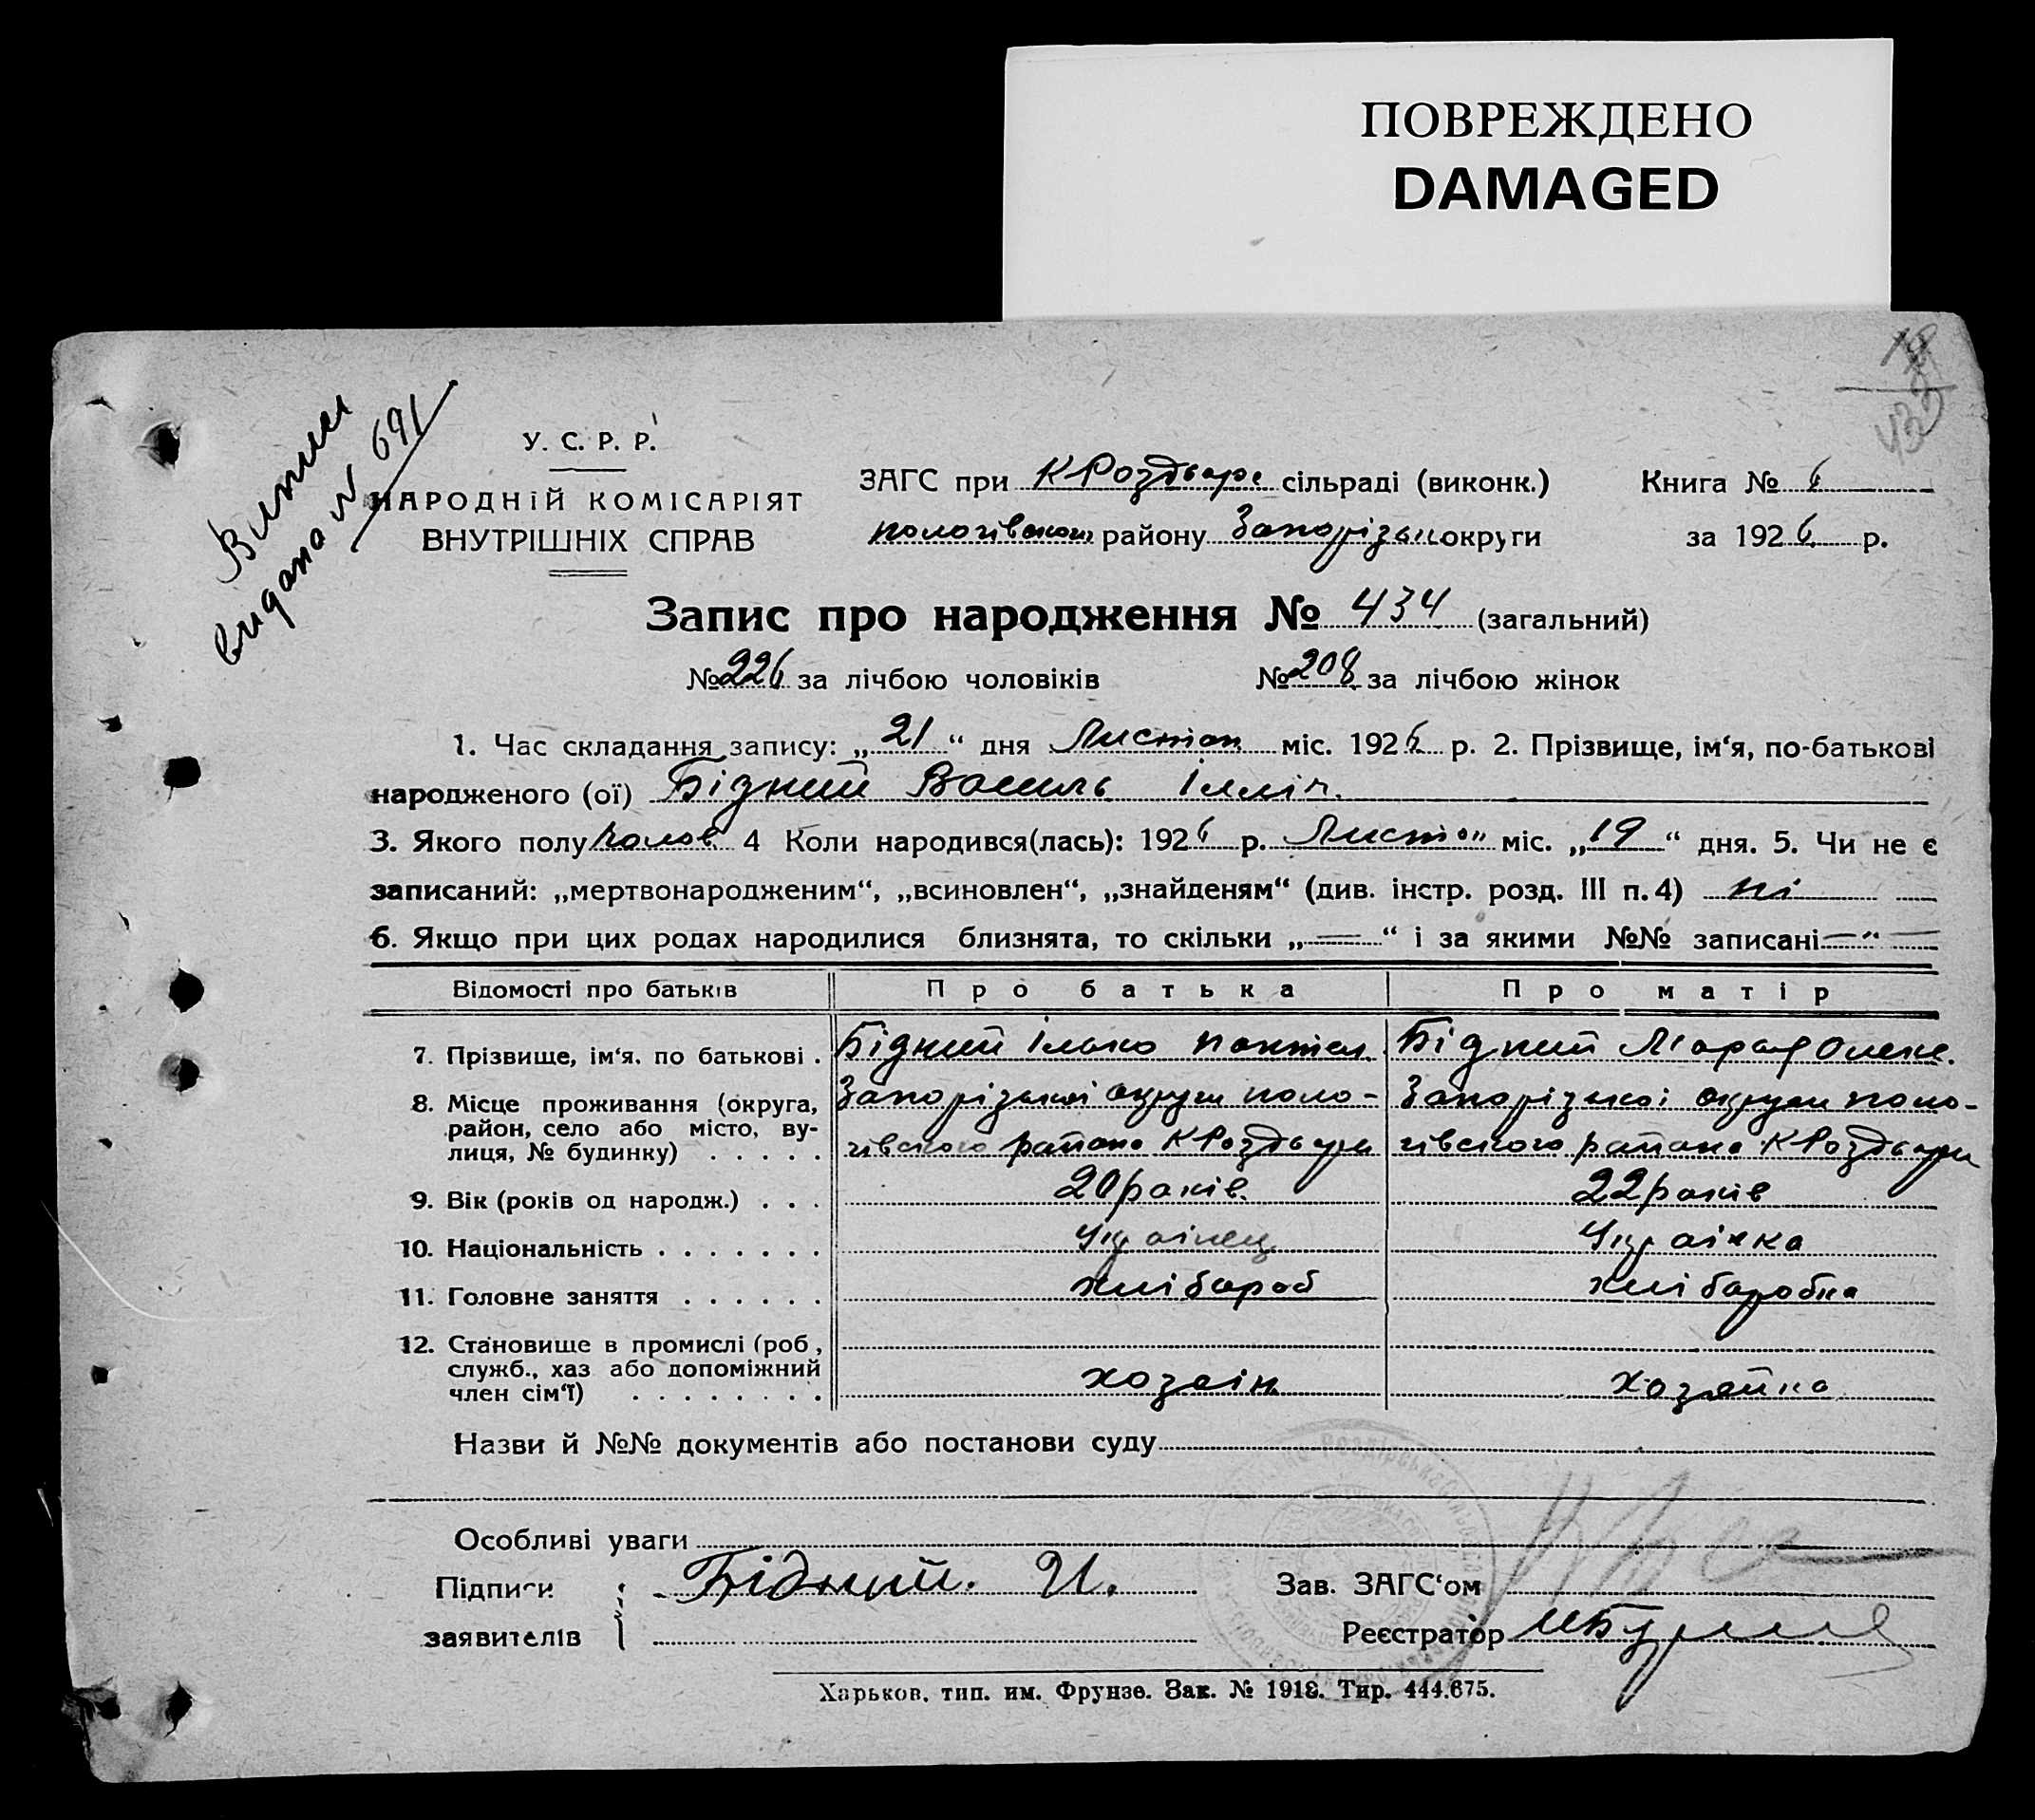 ПОВРЕЖДЕНО
DAMAGED
Випис
видано № 691
У. С. Р. Р.
НАРОДНІЙ КОМІСАРІЯТ
ВНУТРІШНІХ СПРАВ
ЗАГС при К Роздоре сільраді (виконк.) Книга № 6
пологівського району Запорізьк округи за 1926 р.
Запис про народження № 434 (загальний)
№ 226 за лічбою чоловіків № 208 за лічбою жінок
1. Час складання запису: „21“ дня Листоп міс. 1926 р. 2. Прізвище, ім‘я, по-батькові
народженого (ої) Бідний Василь Ілліч.
3. Якого полу чолов 4 Коли народився(лась): 1926 р. Листоп міс. „19“ дня. 5. Чи не є
записаний: „мертвонародженим“, „всиновлен“, „знайденям“ (див. інстр. розд. III п. 4) ні
6. Якщо при цих родах народилися близнята, то скільки „—“ і за якими №№ записані —"—
Відомості про батьків Про батька Про матір
7. Прізвище, ім‘я, по батькові . Бідний Ілько Пантел. Бідний Олекс.
8. Місце проживання (округа, Запорізької округи поло- Запорізької округи поло-
район, село або місто, ву-
лиця, № будинку) . . . . . гівського району К Роздори гівського району К Роздори
9. Вік (років од народж.) . . . 20 років. 22 років
10. Національність . . . . . . . Українец Українка
11. Головне заняття . . . . . . хлібороб хліборобка
12. Становище в промислі (роб,
служб., хаз або допоміжний
член сім‘ї) . . . . . . . . хозаін хозяйка
Назви й №№ документів або постанови суду
Особливі уваги
Підписи Бідний. И. Зав. ЗАГС‘ом
заявителів Реєстратор
Харьков, тип. им. Фрунзе. Зак. № 1918. Тир. 444.675.